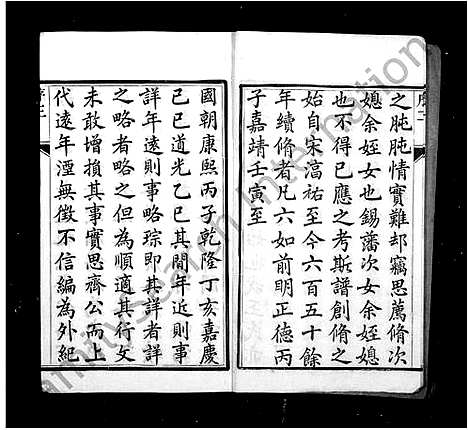 之肫肫情實難却竊思薦脩次
媳余姪女也錫藩次女余姪媳
也不得已應之考斯譜創脩之
始自宋湻祐至今六百五十餘
年續脩者凡六如前明正德丙
子嘉靖壬寅至
國朝康熙丙子乾隆丁亥嘉慶
己巳道光乙巳其間年近則事
詳年遠則事略琮即其詳者詳
之略者略之但為順適其行文
未敢增損其事實思齊公而上
代遠年湮無徵不信編為外紀